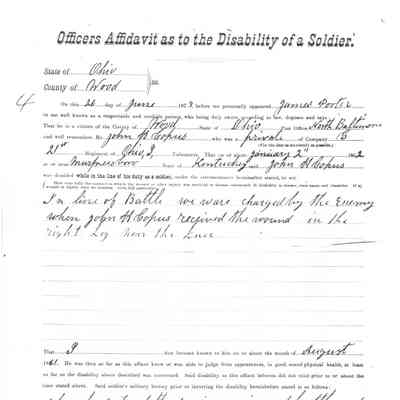 Officers Affidavit as to the Disability of a Soldier.
State of Ohio
County of Wood } ss:
4
On this 26 day of June 18 , before me personally appeared James Porter
to me well known as a respectable and credible person, who being duly sworn according to law, deposes and says:
That he is a citizen of the County of Wood State of Ohio Post Office North Baltimore
and well remembers Mr. John H Copus who was a private of Company
21st Regiment of Ohio, Volunteers. That on or about January 2nd
at or near Murfreesboro State of Kentucky said John H Copus
was disabled while in the line of his duty as a soldier, under the circumstances hereinafter stated, to wit:
In line of Battle we ware charged by the Enemy
when John H Copus received the wound in the
right Leg near the knee
That I first became known to him on or about the month of August
1861. He was then so far as this affiant knew or was able to judge from appearances, in good sound physical health, at least
so far as the disability above described was concerned. Said disability as this affiant believes did not exist prior to or about the
time stated above. Said soldier's military history prior to incurring the disability hereinbefore stated is as follows: